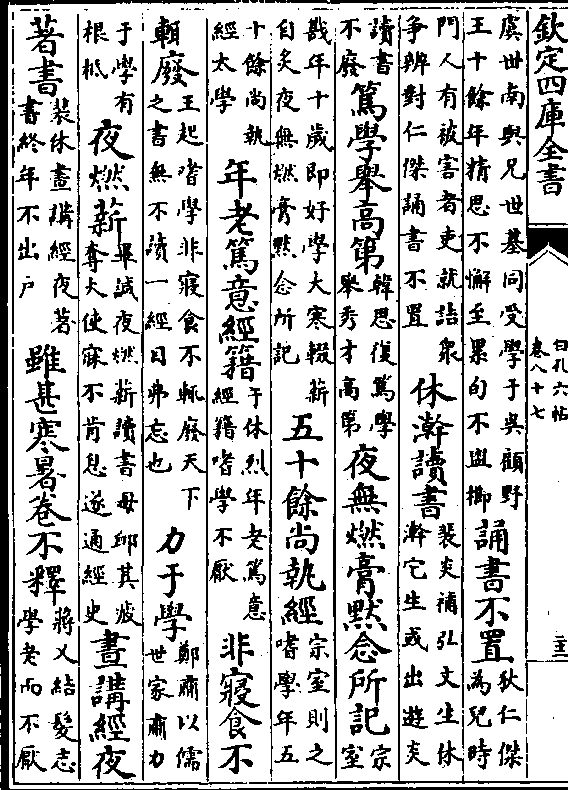 欽定四庫全書
白孔六帖
卷八十七
虞世南與兄世基同受學于吳顧野
王十餘年精思不懈至累旬不盥櫛
誦書不置
狄仁傑
為兒時
門人有被害者吏就詰衆
爭辨對仁傑誦書不置
休澣讀書
裴炎補弘文生休
澣它生或出遊炎
讀書
不廢
篤學舉高第
韓思復篤學
舉秀才高第
夜無燃膏默念所記
宗
室
戡年十歲即好學大寒輟薪
自炙夜無燃膏默念所記
五十餘尚執經
宗室則之
嗜學年五
十餘尚執
經太學
年老篤意經籍
于休烈年老篤意
經籍嗜學不厭
非寢食不
輒廢
王起嗜學非寢食不輒廢天下
之書無不讀一經目弗忘也
力于學
鄭肅以儒
世家肅力
于學有
根柢
夜燃薪
畢諴夜燃薪讀書母卹其疲
奪火使寐不肯息遂通經史
晝講經夜
著書
裴休晝講經夜著
書終年不出戶
雖甚寒暑卷不釋
蔣乂結髮志
學老而不厭